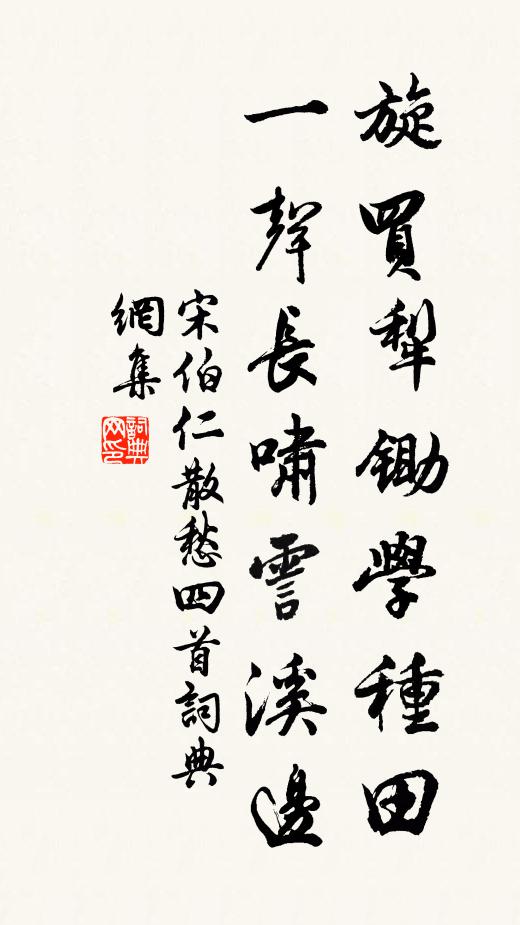 旋買犁鋤學種田
一聲長嘯霅溪邊
宋伯仁散愁四首詞典
網集
詞典
网印